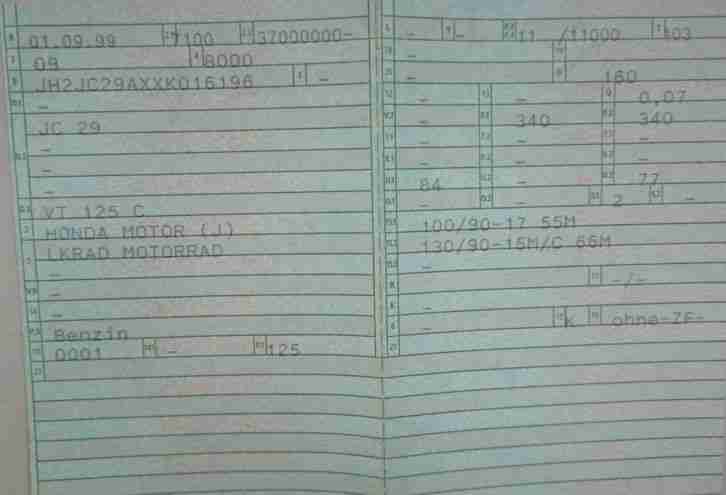 01.09.99 7100 37000000-
09 8000
JH2JC29AXXK016196 -
-
JC 29
-
-
-
VT 125 C
HONDA MOTOR (J)
LKRAD MOTORRAD
-
-
-
Benzin
0001 - 125
- - 11 /11000 103
-
- 160
- - 0,07
- 340 340
- - -
- - -
84 - 77
- - 2 -
100/90-17 55M
130/90-15M/C 66M
-
-/-
-
- K ohne-ZF-